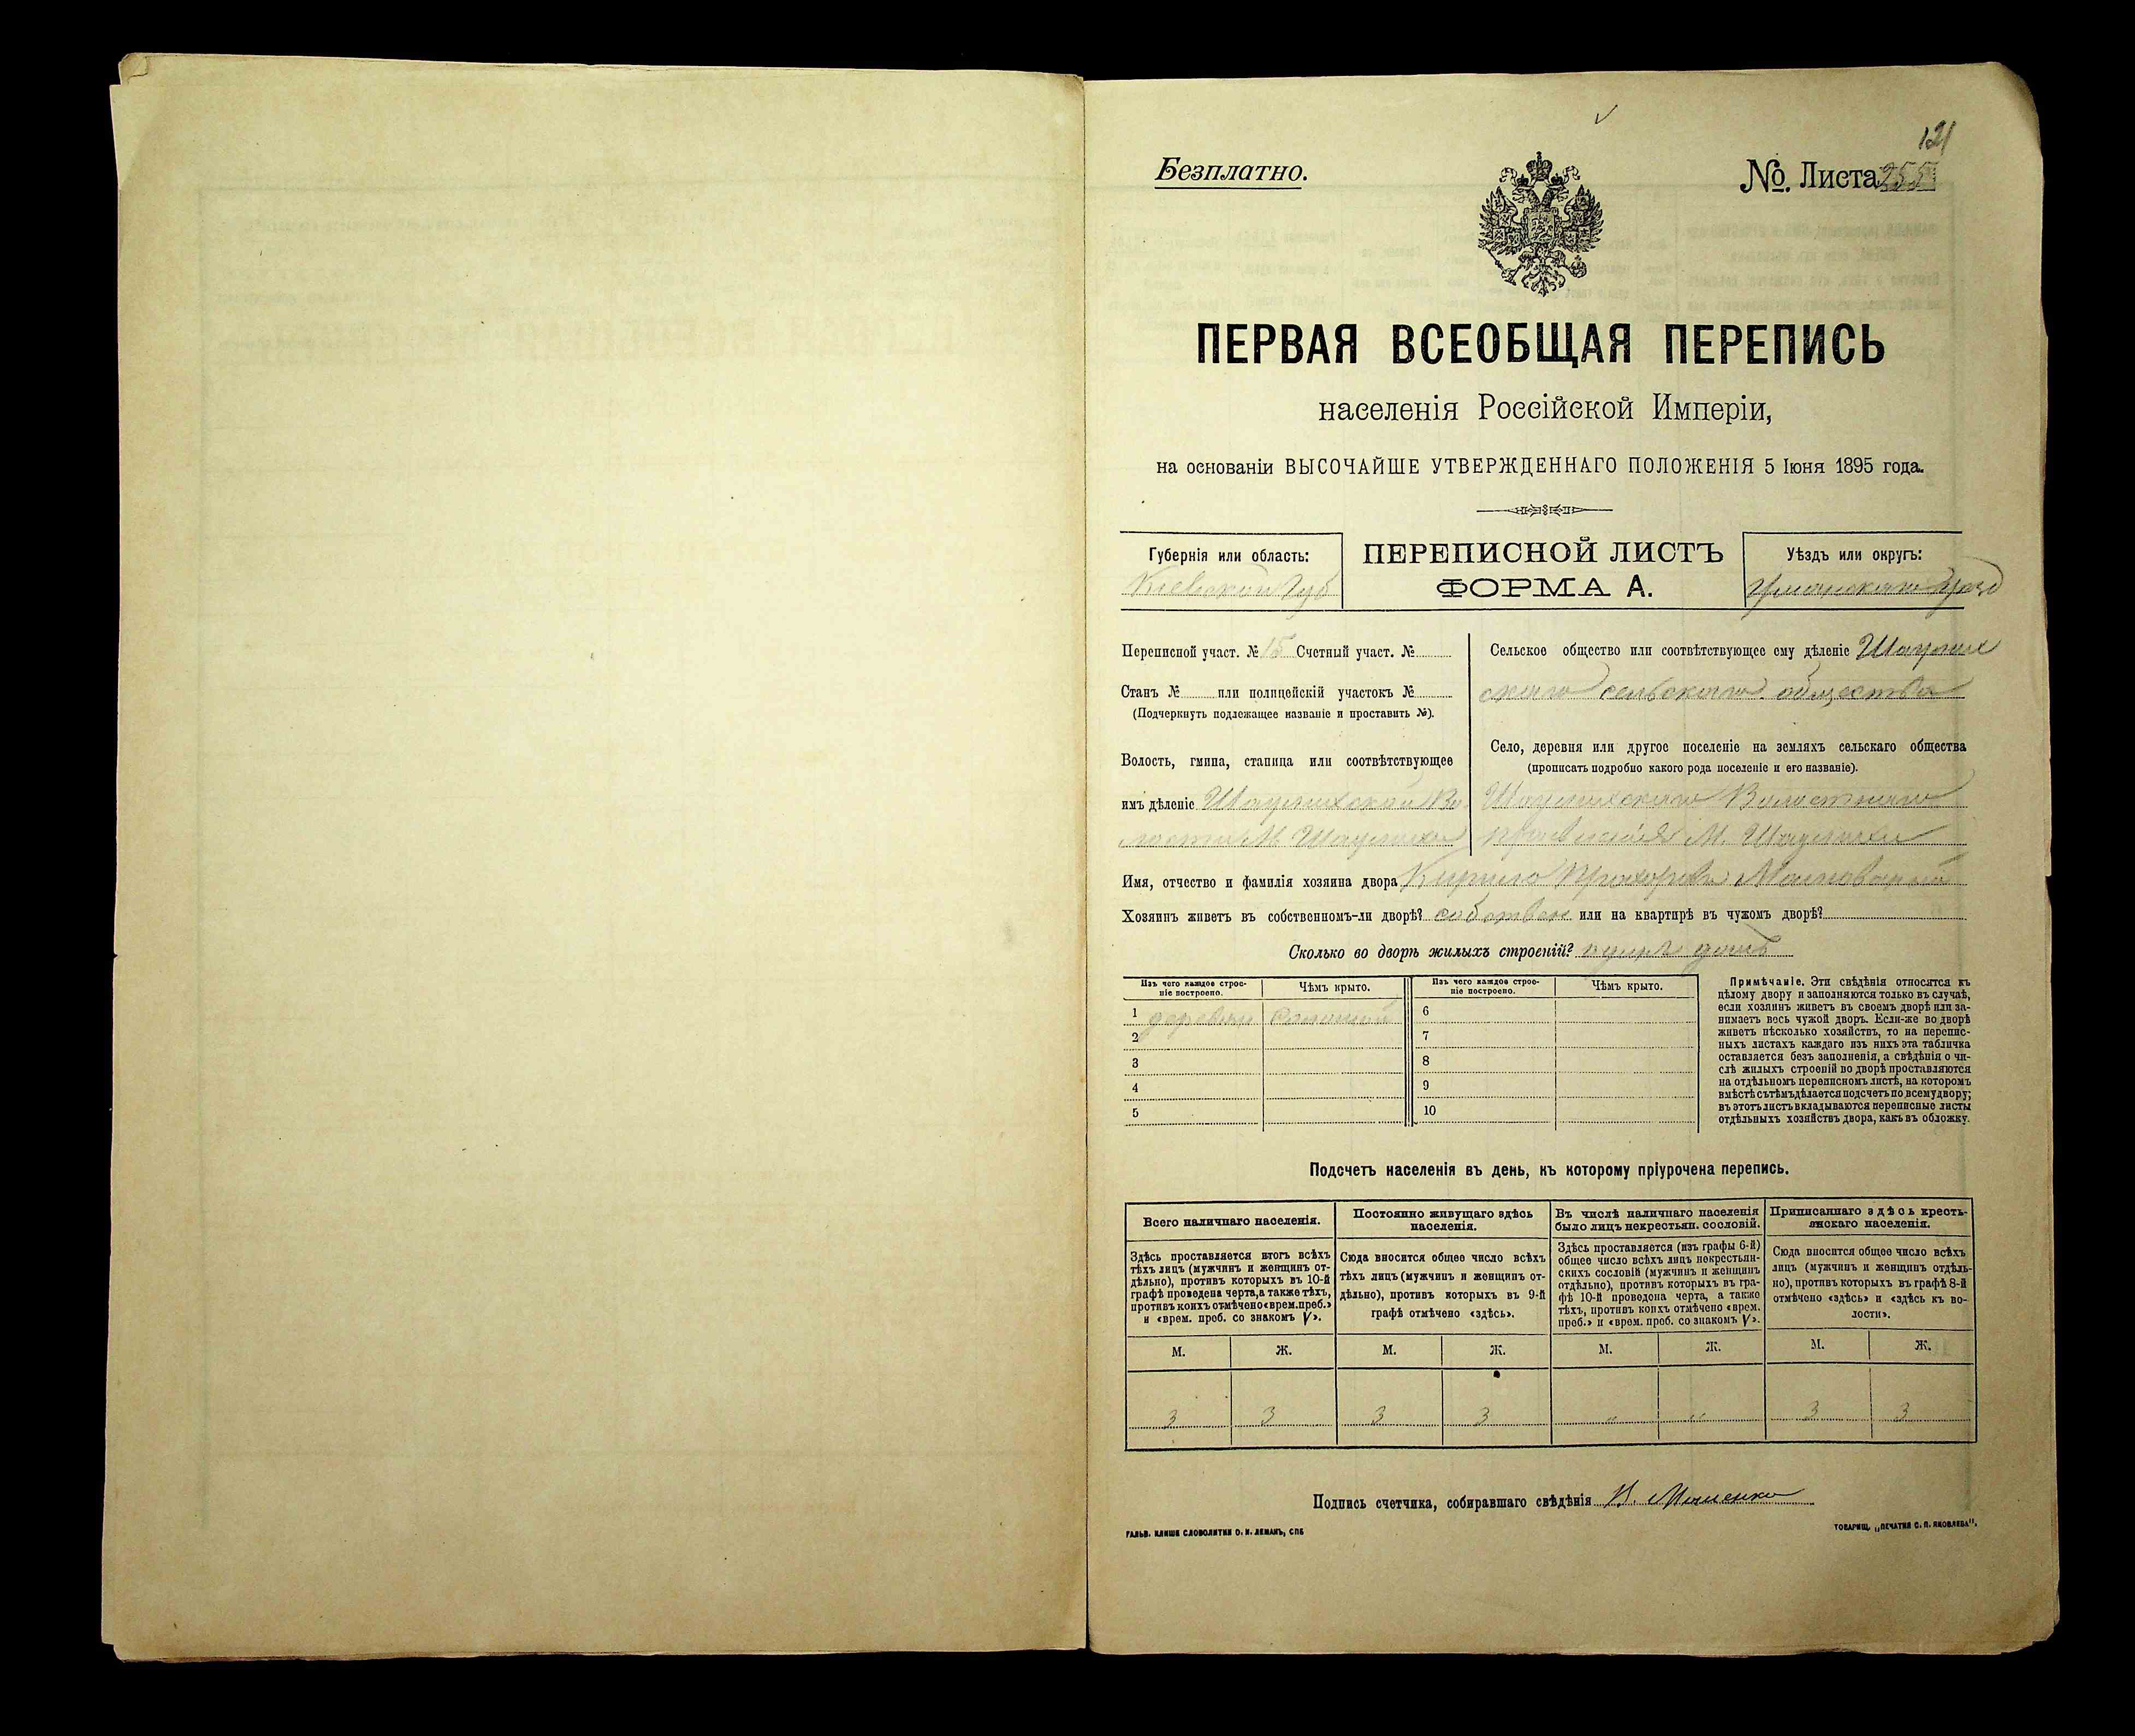 121
Безплатно.
№ Листа 255
ПЕРВАЯ ВСЕОБЩАЯ ПЕРЕПИСЬ
населенія Россійской Имперіи,
на основаніи ВЫСОЧАЙШЕ УТВЕРЖДЕННАГО ПОЛОЖЕНІЯ 5 Іюня 1895 года.
Губернія или область:
Кіевской Губ
ПЕРЕПИСНОЙ ЛИСТЪ
ФОРМА А.
Уѣздъ или округъ:
Уманскаго уѣзд
Переписной участ. № 15 Счетный участ. №
Станъ № или полицейскій участокъ №
(Подчеркнуть подлежащее названіе и проставить №).
Волость, гмина, станица или соотвѣтствующее
имъ дѣленіе Шаулихской Во
лости М. Шаулиха
Сельское общество или соотвѣтствующее ему дѣленіе Шаулих
скаго сельскаго общества
Село, деревня или другое поселеніе на земляхъ сельскаго общества
(прописать подробно какого рода поселеніе и его названіе).
Шаулихскаго Волостнаго
правленія М. Шаулиха
Имя, отчество и фамилія хозяина двора Кирило Прохоровъ
Хозяинъ живетъ въ собственномъ-ли дворѣ? собствен или на квартирѣ въ чужомъ дворѣ?
Сколько во дворѣ жилыхъ строеній? домъ
Изъ чего каждое строе-
ніе построено.
Чѣмъ крыто.
Изъ чего каждое строе-
ніе построено.
Чѣмъ крыто.
1 деревян Соломой 6
2 7
3 8
4 9
5 10
Примѣчаніе. Эти свѣдѣнія относятся къ
цѣлому двору и заполняются только въ случаѣ,
если хозяинъ живетъ въ своемъ дворѣ или за-
нимаетъ весь чужой дворъ. Если-же во дворѣ
живетъ нѣсколько хозяйствъ, то на перепис-
ныхъ листахъ каждаго изъ нихъ эта табличка
оставляется безъ заполненія, а свѣдѣнія о чи-
слѣ жилыхъ строеній во дворѣ проставляются
на отдѣльномъ переписномъ листѣ, на которомъ
вмѣстѣ съ тѣмъ дѣлается подсчетъ по всему двору;
въ этотъ листъ вкладываются переписные листы
отдѣльныхъ хозяйствъ двора, какъ въ обложку.
Подсчетъ населенія въ день, къ которому пріурочена перепись.
Всего наличнаго населенія.
Здѣсь проставляется итогъ всѣхъ
тѣхъ лицъ (мужчинъ и женщинъ от-
дѣльно), противъ которыхъ въ 10-й
графѣ проведена черта, а также тѣхъ,
противъ коихъ отмѣчено «врем. преб.»
и «врем. преб. со знакомъ V».
Постоянно живущаго здѣсь
населенія.
Сюда вносится общее число всѣхъ
тѣхъ лицъ (мужчинъ и женщинъ от-
дѣльно), противъ которыхъ въ 9-й
графѣ отмѣчено «здѣсь».
Въ числѣ наличнаго населенія
было лицъ некрестьян. сословій.
Здѣсь проставляется (изъ графы 6-й)
общее число всѣхъ лицъ некрестьян-
скихъ сословій (мужчинъ и женщинъ
отдѣльно), противъ которыхъ въ гра-
фѣ 10-й проведена черта, а также
тѣхъ, противъ коихъ отмѣчено «врем.
преб.» и «врем. преб. со знакомъ V».
Приписаннаго здѣсь кресть-
янскаго населенія.
Сюда вносится общее число всѣхъ
лицъ (мужчинъ и женщинъ отдѣль-
но), противъ которыхъ въ графѣ 8-й
отмѣчено «здѣсь» и «здѣсь къ во-
лости».
М. Ж. М. Ж. М. Ж. М. Ж.
3 3 3 3 " " 3 3
Подпись счетчика, собиравшаго свѣдѣнія
ГАЛЬВ. КЛИШЕ СЛОВОЛИТНИ О. И. ЛЕМАНЪ, СПБ
ТОВАРИЩ. „ПЕЧАТНЯ С. П. ЯКОВЛЕВА".